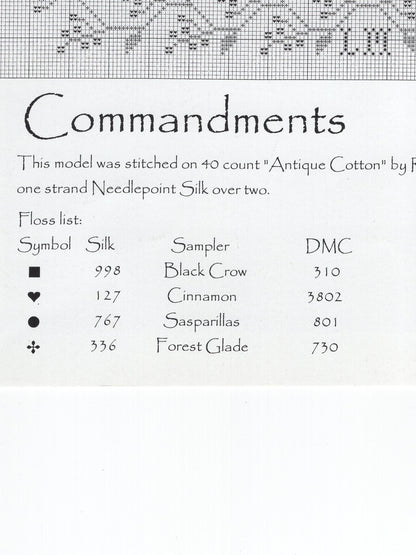 Commandments
This model was stitched on 40 count "Antique Cotton" by
one strand Needlepoint Silk over two.
Floss list:
Symbol Silk Sampler DMC
■ 998 Black Crow 310
♥ 127 Cinnamon 3802
● 767 Sasparillas 801
✣ 336 Forest Glade 730